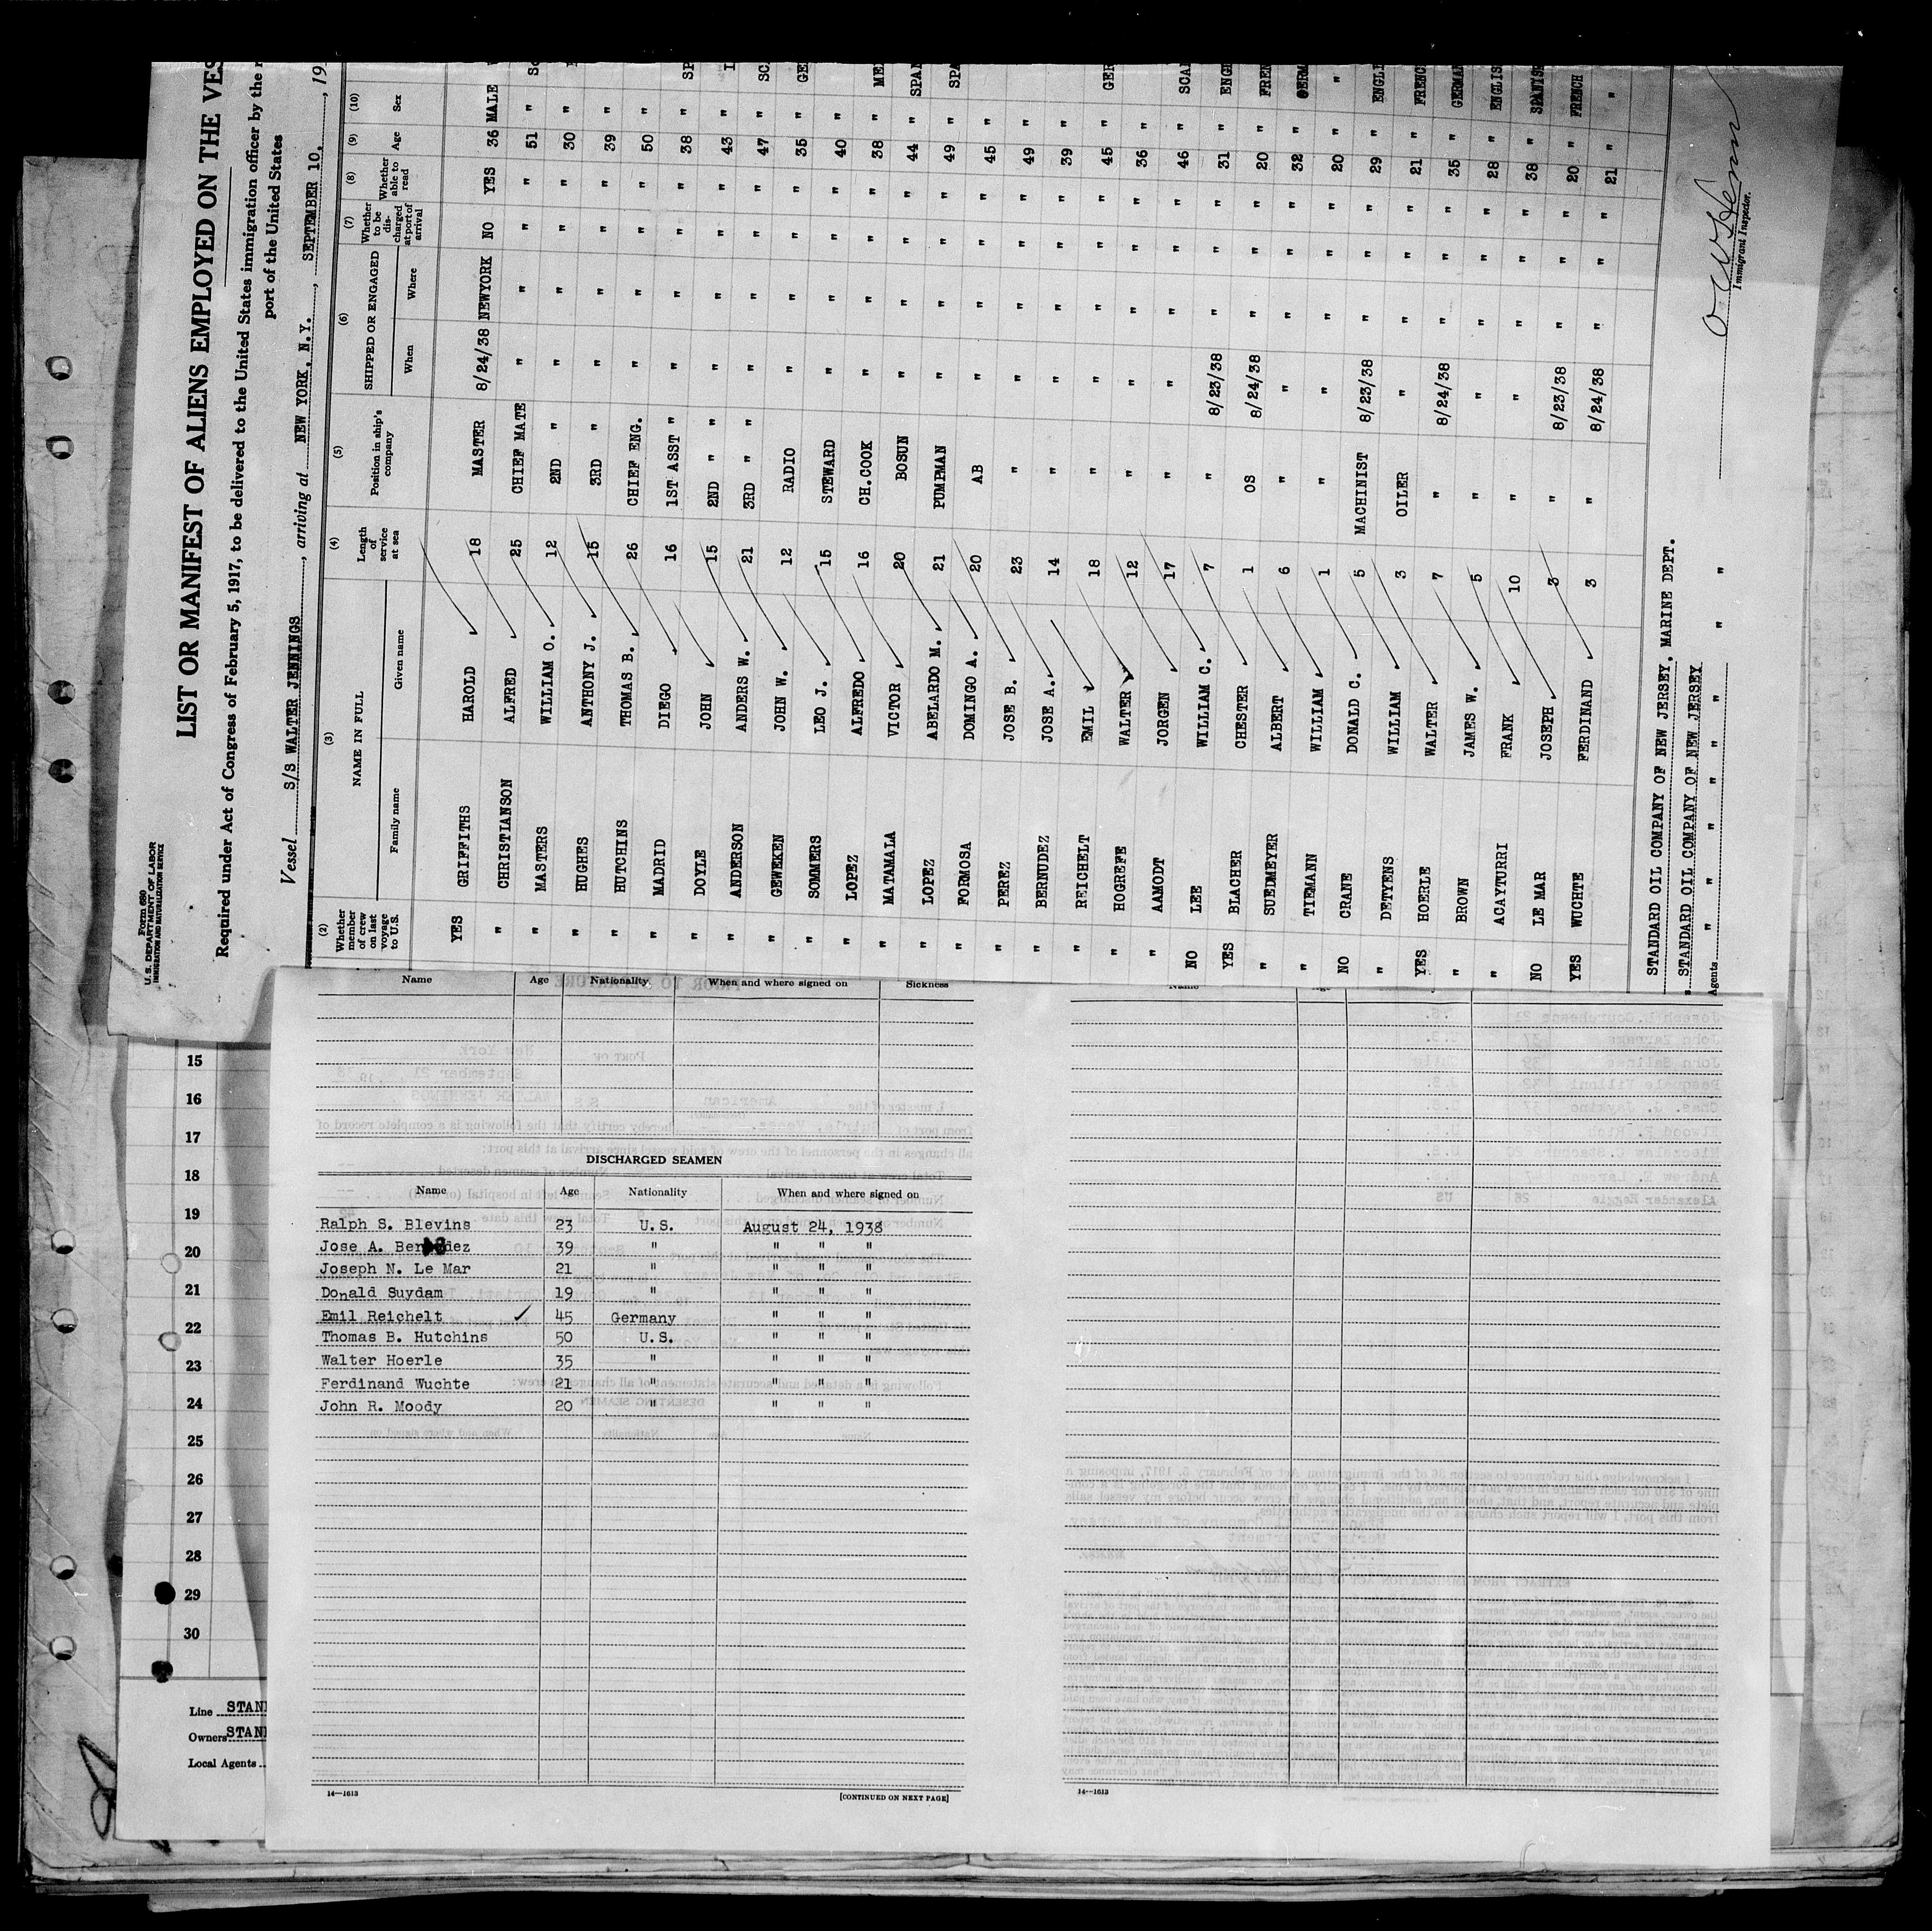 Form 680
U.S. DEPARTMENT OF LABOR
IMMIGRATION AND NATURALIZATION SERVICE
LIST OR MANIFEST OF ALIENS EMPLOYED ON THE VES
Required under Act of Congress of February 5, 1917, to be delivered to the United States immigration officer by the r
port of the United States
Vessel S/S WALTER JENNINGS, arriving at NEW YORK, N.Y., SEPTEMBER 10, 19
(2) (3) (4) (5) (6) (7) (8) (9) (10)
Whether member of crew on last voyage to U.S. NAME IN FULL Family name Given name Length of service at sea Position in ship's company SHIPPED OR ENGAGED When Where Whether to be discharged at port of arrival Whether able to read Age Sex
YES GRIFFITHS HAROLD 18 MASTER 8/24/38 NEWYORK NO YES 36 MALE
" CHRISTIANSON ALFRED 25 CHIEF MATE " " " " 51 " SC
" MASTERS WILLIAM O. 12 2ND " " " " " 30 "
" HUGHES ANTHONY J. 15 3RD " " " " " 39 "
" HUTCHINS THOMAS B. 26 CHIEF ENG. " " " " 50 "
" MADRID DIEGO 16 1ST ASST " " " " " 38 " SP
" DOYLE JOHN 15 2ND " " " " " " 43 " I
" ANDERSON ANDERS W. 21 3RD " " " " " " 47 " SCA
" GEWEKEN JOHN W. 12 RADIO " " " " 35 " GE
" SOMMERS LEO J. 15 STEWARD " " " " 40 "
" LOPEZ ALFREDO 16 CH.COOK " " " " 38 " ME
" MATAMALA VICTOR 20 BOSUN " " " " 44 " SPAN
" LOPEZ ABELARDO M. 21 PUMPMAN " " " " 49 " SPA
" FORMOSA DOMINGO A. 20 AB " " " " 45 "
" PEREZ JOSE B. 23 " " " " " 49 "
" BERNUDEZ JOSE A. 14 " " " " " 39 "
" REICHELT EMIL 18 " " " " " 45 " GER
" HOGREFE WALTER 12 " " " " " 36 "
" AAMODT JORGEN 17 " " " " " 46 " SCA
NO LEE WILLIAM C. 7 " 8/23/38 " " " 31 " ENG
YES BLACHER CHESTER 1 OS 8/24/38 " " " 20 " FREN
" SUEDMEYER ALBERT 6 " " " " " 32 " GERM
" TIEMANN WILLIAM 1 " " " " " 20 " "
NO CRANE DONALD C. 5 MACHINIST 8/23/38 " " " 29 " ENGLI
" DETYENS WILLIAM 3 OILER " " " " 21 " FRENC
YES HOERLE WALTER 7 " 8/24/38 " " " 35 " GERMA
" BROWN JAMES W. 5 " " " " " 28 " ENGLIS
" ACAYTURRI FRANK 10 " " " " " 38 " SPANIS
NO LE MAR JOSEPH 3 " 8/23/38 " " " 20 " FRENCH
YES WUCHTE FERDINAND 3 " 8/24/38 " " " 21 " "
STANDARD OIL COMPANY OF NEW JERSEY, MARINE DEPT.
STANDARD OIL COMPANY OF NEW JERSEY
Agents " " " " " " "
Immigrant Inspector.
Name Age Nationality When and where signed on Sickness
DISCHARGED SEAMEN
Name Age Nationality When and where signed on
Ralph S. Blevins 23 U.S. August 24, 1938
Jose A. Bernudez 39 " " " "
Joseph N. Le Mar 21 " " " "
Donald Suydam 19 " " " "
Emil Reichelt ✓ 45 Germany " " "
Thomas B. Hutchins 50 U.S. " " "
Walter Hoerle 35 " " " "
Ferdinand Wuchte 21 " " " "
John R. Moody 20 " " " "
14—1613 [CONTINUED ON NEXT PAGE]
14—1613
15
16
17
18
19
20
21
22
23
24
25
26
27
28
29
30
Line STAN
Owners STAN
Local Agents